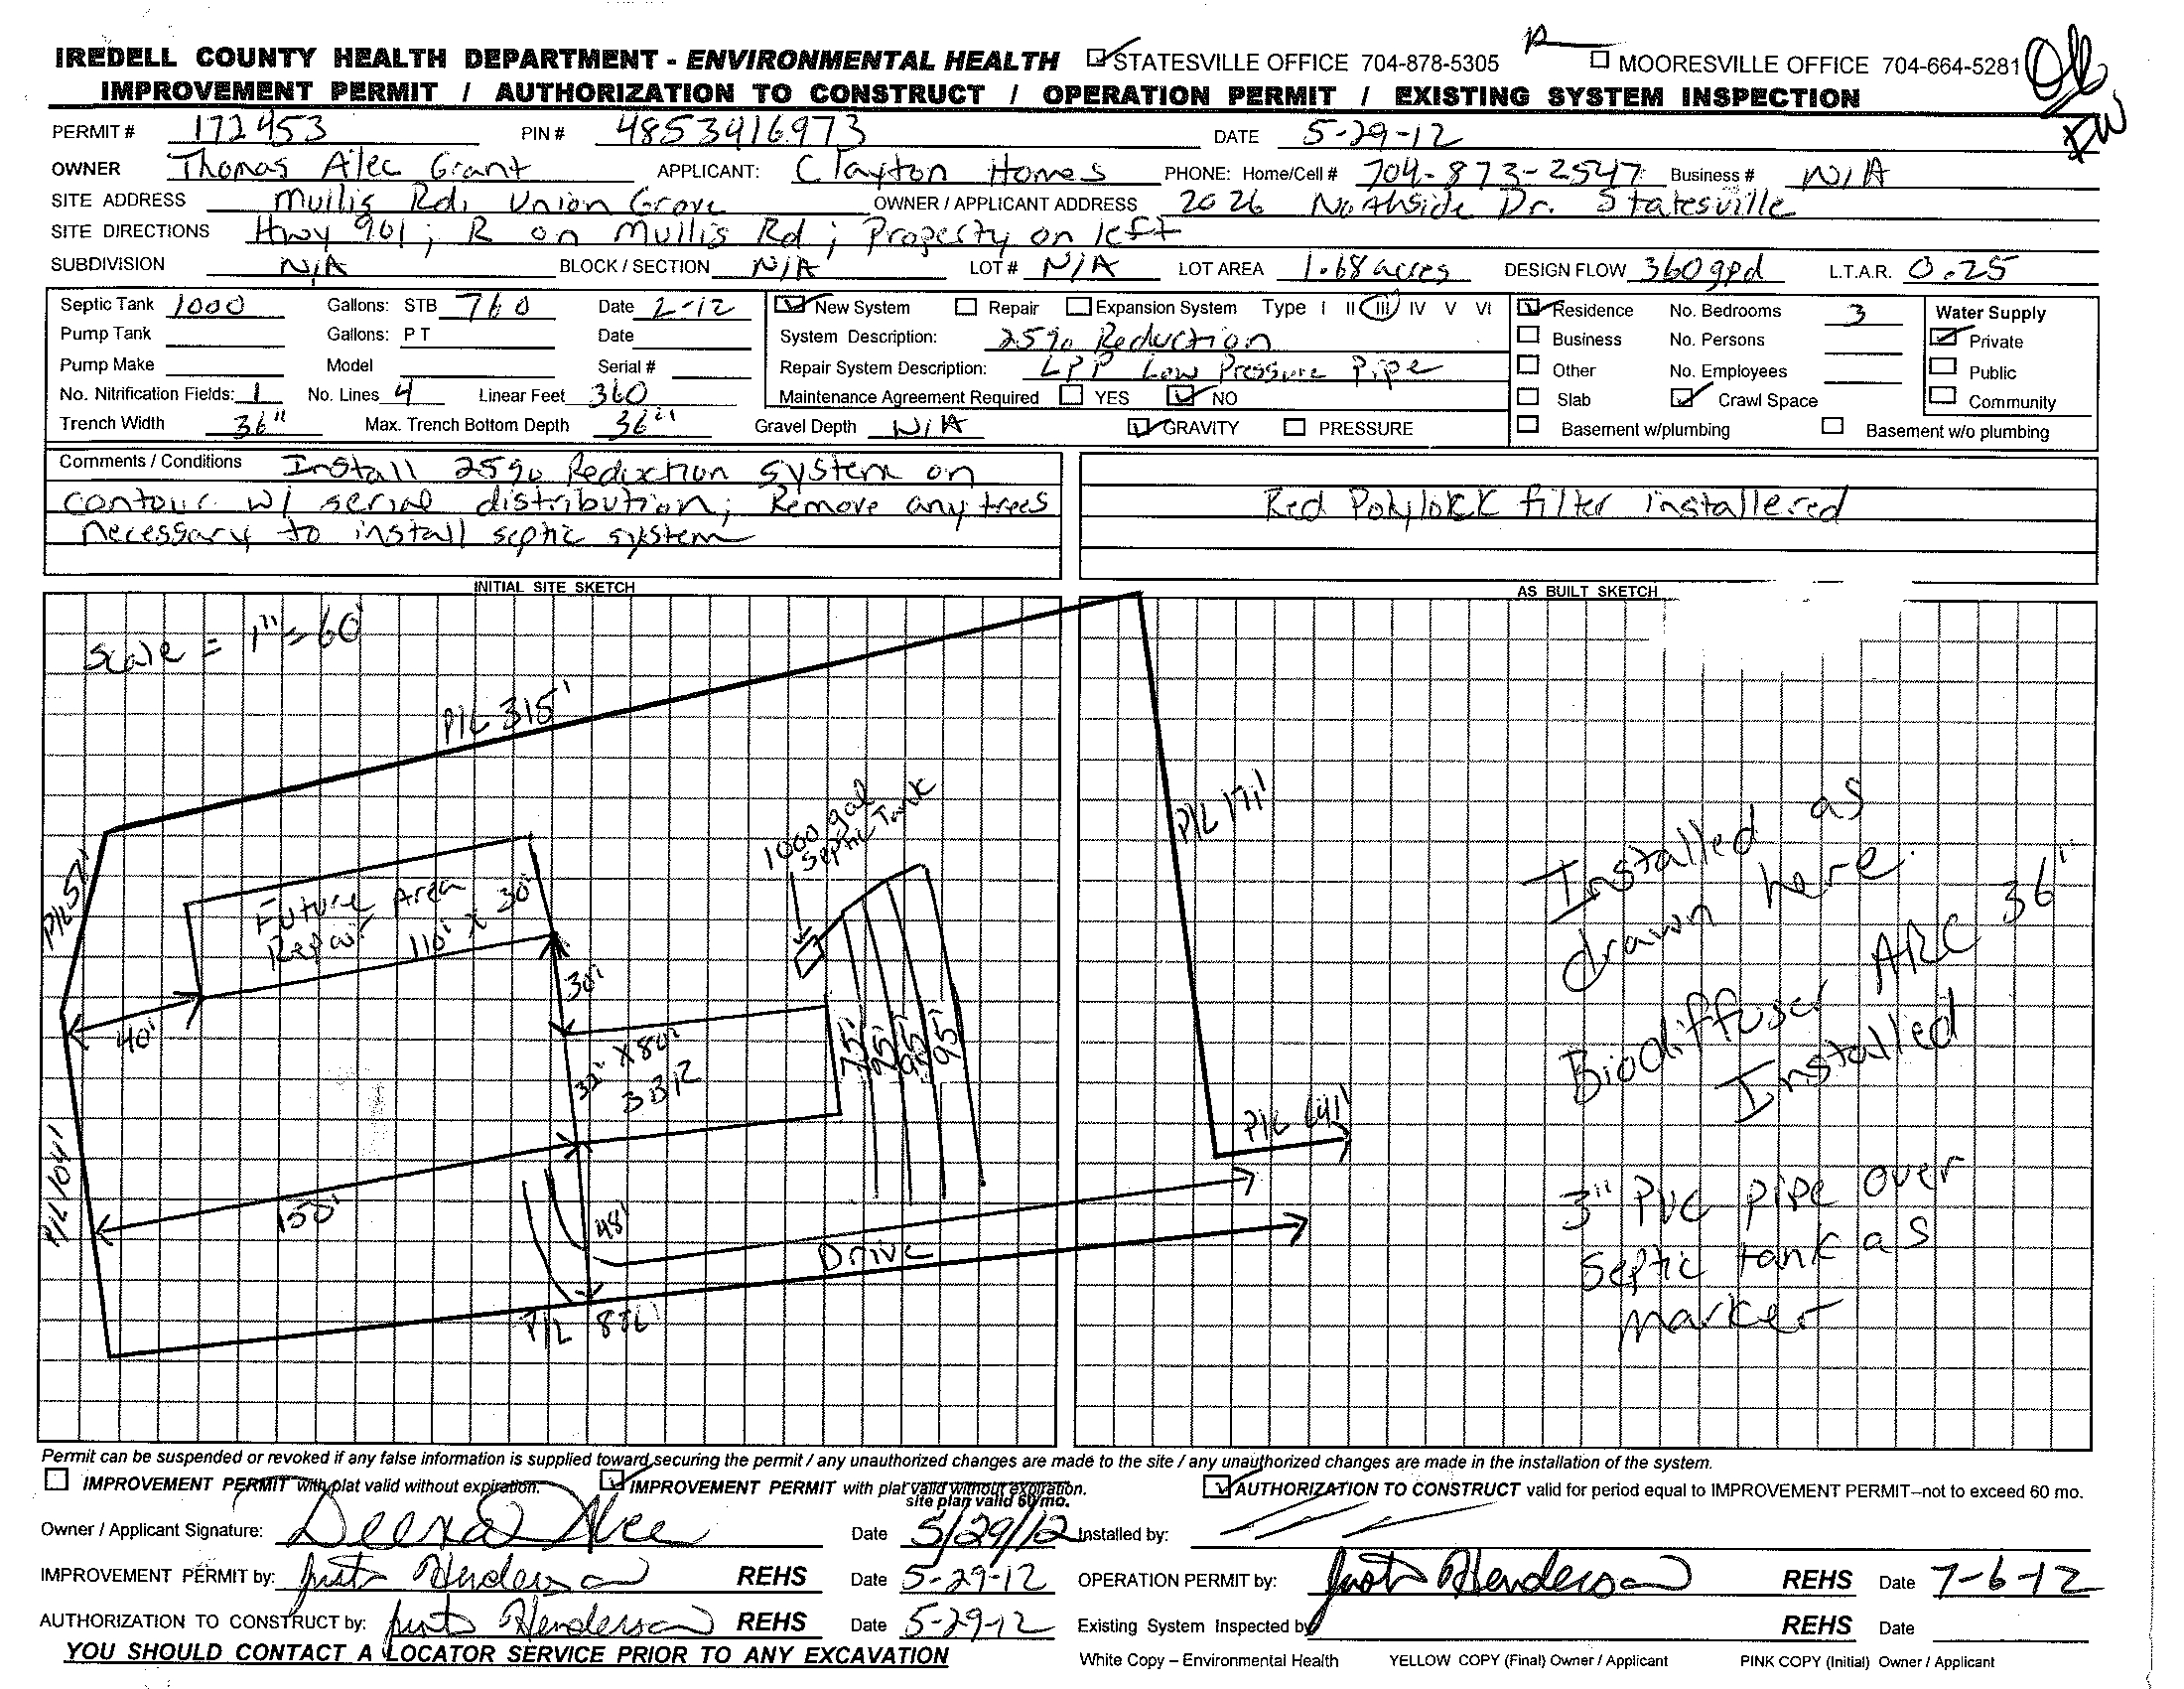 IREDELL COUNTY HEALTH DEPARTMENT - ENVIRONMENTAL HEALTH STATESVILLE OFFICE 704-878-5305 MOORESVILLE OFFICE 704-664-5281
IMPROVEMENT PERMIT / AUTHORIZATION TO CONSTRUCT / OPERATION PERMIT / EXISTING SYSTEM INSPECTION
PERMIT # 172953 PIN # 4853416973 DATE 5-29-12
OWNER Thomas Alec Grant APPLICANT: Clayton Homes PHONE: Home/Cell # 704-873-2547 Business # N/A
SITE ADDRESS Mullis Rd, Union Grove OWNER / APPLICANT ADDRESS 2026 Northside Dr. Statesville
SITE DIRECTIONS Hwy 901; R on Mullis Rd; Property on left
SUBDIVISION N/A BLOCK / SECTION N/A LOT # N/A LOT AREA 1.68 acres DESIGN FLOW 360gpd L.T.A.R. 0.25
Septic Tank 1000 Gallons: STB 760 Date 2-12 New System Repair Expansion System Type I II III IV V VI Residence No. Bedrooms 3 Water Supply
Pump Tank Gallons: P T Date System Description: 25% Reduction Business No. Persons Private
Pump Make Model Serial # Repair System Description: LPP Low Pressure Pipe Other No. Employees Public
No. Nitrification Fields: 1 No. Lines 4 Linear Feet 360 Maintenance Agreement Required YES NO Slab Crawl Space Community
Trench Width 36" Max. Trench Bottom Depth 36" Gravel Depth N/A GRAVITY PRESSURE Basement w/plumbing Basement w/o plumbing
Comments / Conditions Install 25% Reduction system on
contour w/ serial distribution; Remove any trees
necessary to install septic system
Red Polylokk filter installered
INITIAL SITE SKETCH
AS BUILT SKETCH
Scale = 1" = 60'
P/L 315'
1000 gal
Septic Tank
P/L 171'
P/L 57'
Future Area
Repair 110' x 30'
30'
40'
32' x 80'
3BR
75'
95'
95'
95'
P/L 641'
P/L 104'
150'
48'
Drive
P/L 836'
Installed as
drawn here.
Biodiffuser ARC 36"
Installed
3" PVC pipe over
septic tank as
marker
Permit can be suspended or revoked if any false information is supplied toward securing the permit / any unauthorized changes are made to the site / any unauthorized changes are made in the installation of the system.
IMPROVEMENT PERMIT with plat valid without expiration. IMPROVEMENT PERMIT with plat valid without expiration. AUTHORIZATION TO CONSTRUCT valid for period equal to IMPROVEMENT PERMIT--not to exceed 60 mo.
site plan valid 60 mo.
Owner / Applicant Signature: Date 5/29/12 Installed by:
IMPROVEMENT PERMIT by: Justin Henderson REHS Date 5-29-12 OPERATION PERMIT by: Justin Henderson REHS Date 7-6-12
AUTHORIZATION TO CONSTRUCT by: Justin Henderson REHS Date 5-29-12 Existing System Inspected by REHS Date
YOU SHOULD CONTACT A LOCATOR SERVICE PRIOR TO ANY EXCAVATION
White Copy – Environmental Health YELLOW COPY (Final) Owner / Applicant PINK COPY (Initial) Owner / Applicant